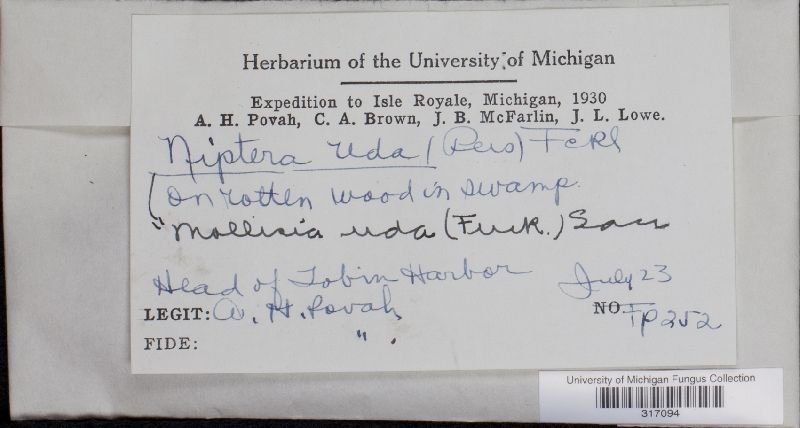 Herbarium of the University of Michigan
Expedition to Isle Royale, Michigan, 1930
A. H. Povah, C. A. Brown, J. B. McFarlin, J. L. Lowe.
Niptera uda (Pers) Fckl
on rotten wood in swamp.
"Mollisia uda (Fuck.) Sacc
Head of Tobin Harbor July 23
LEGIT: A. H. Povah NO. Fp252
FIDE: " .
University of Michigan Fungus Collection
317094